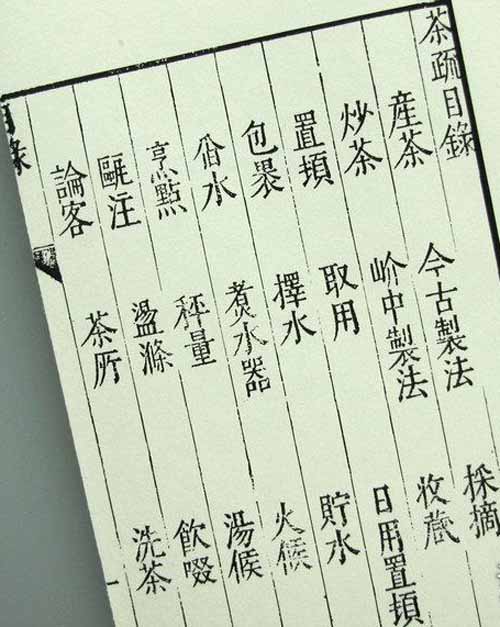 茶疏目錄
產茶 今古製法 採摘
炒茶 岕中製法 收藏
置頓 取用 日用置頓
包裹 擇水 貯水
舀水 煑水器 火候
烹點 秤量 湯候
甌注 盪滌 飲啜
論客 茶所 洗茶
目錄 一